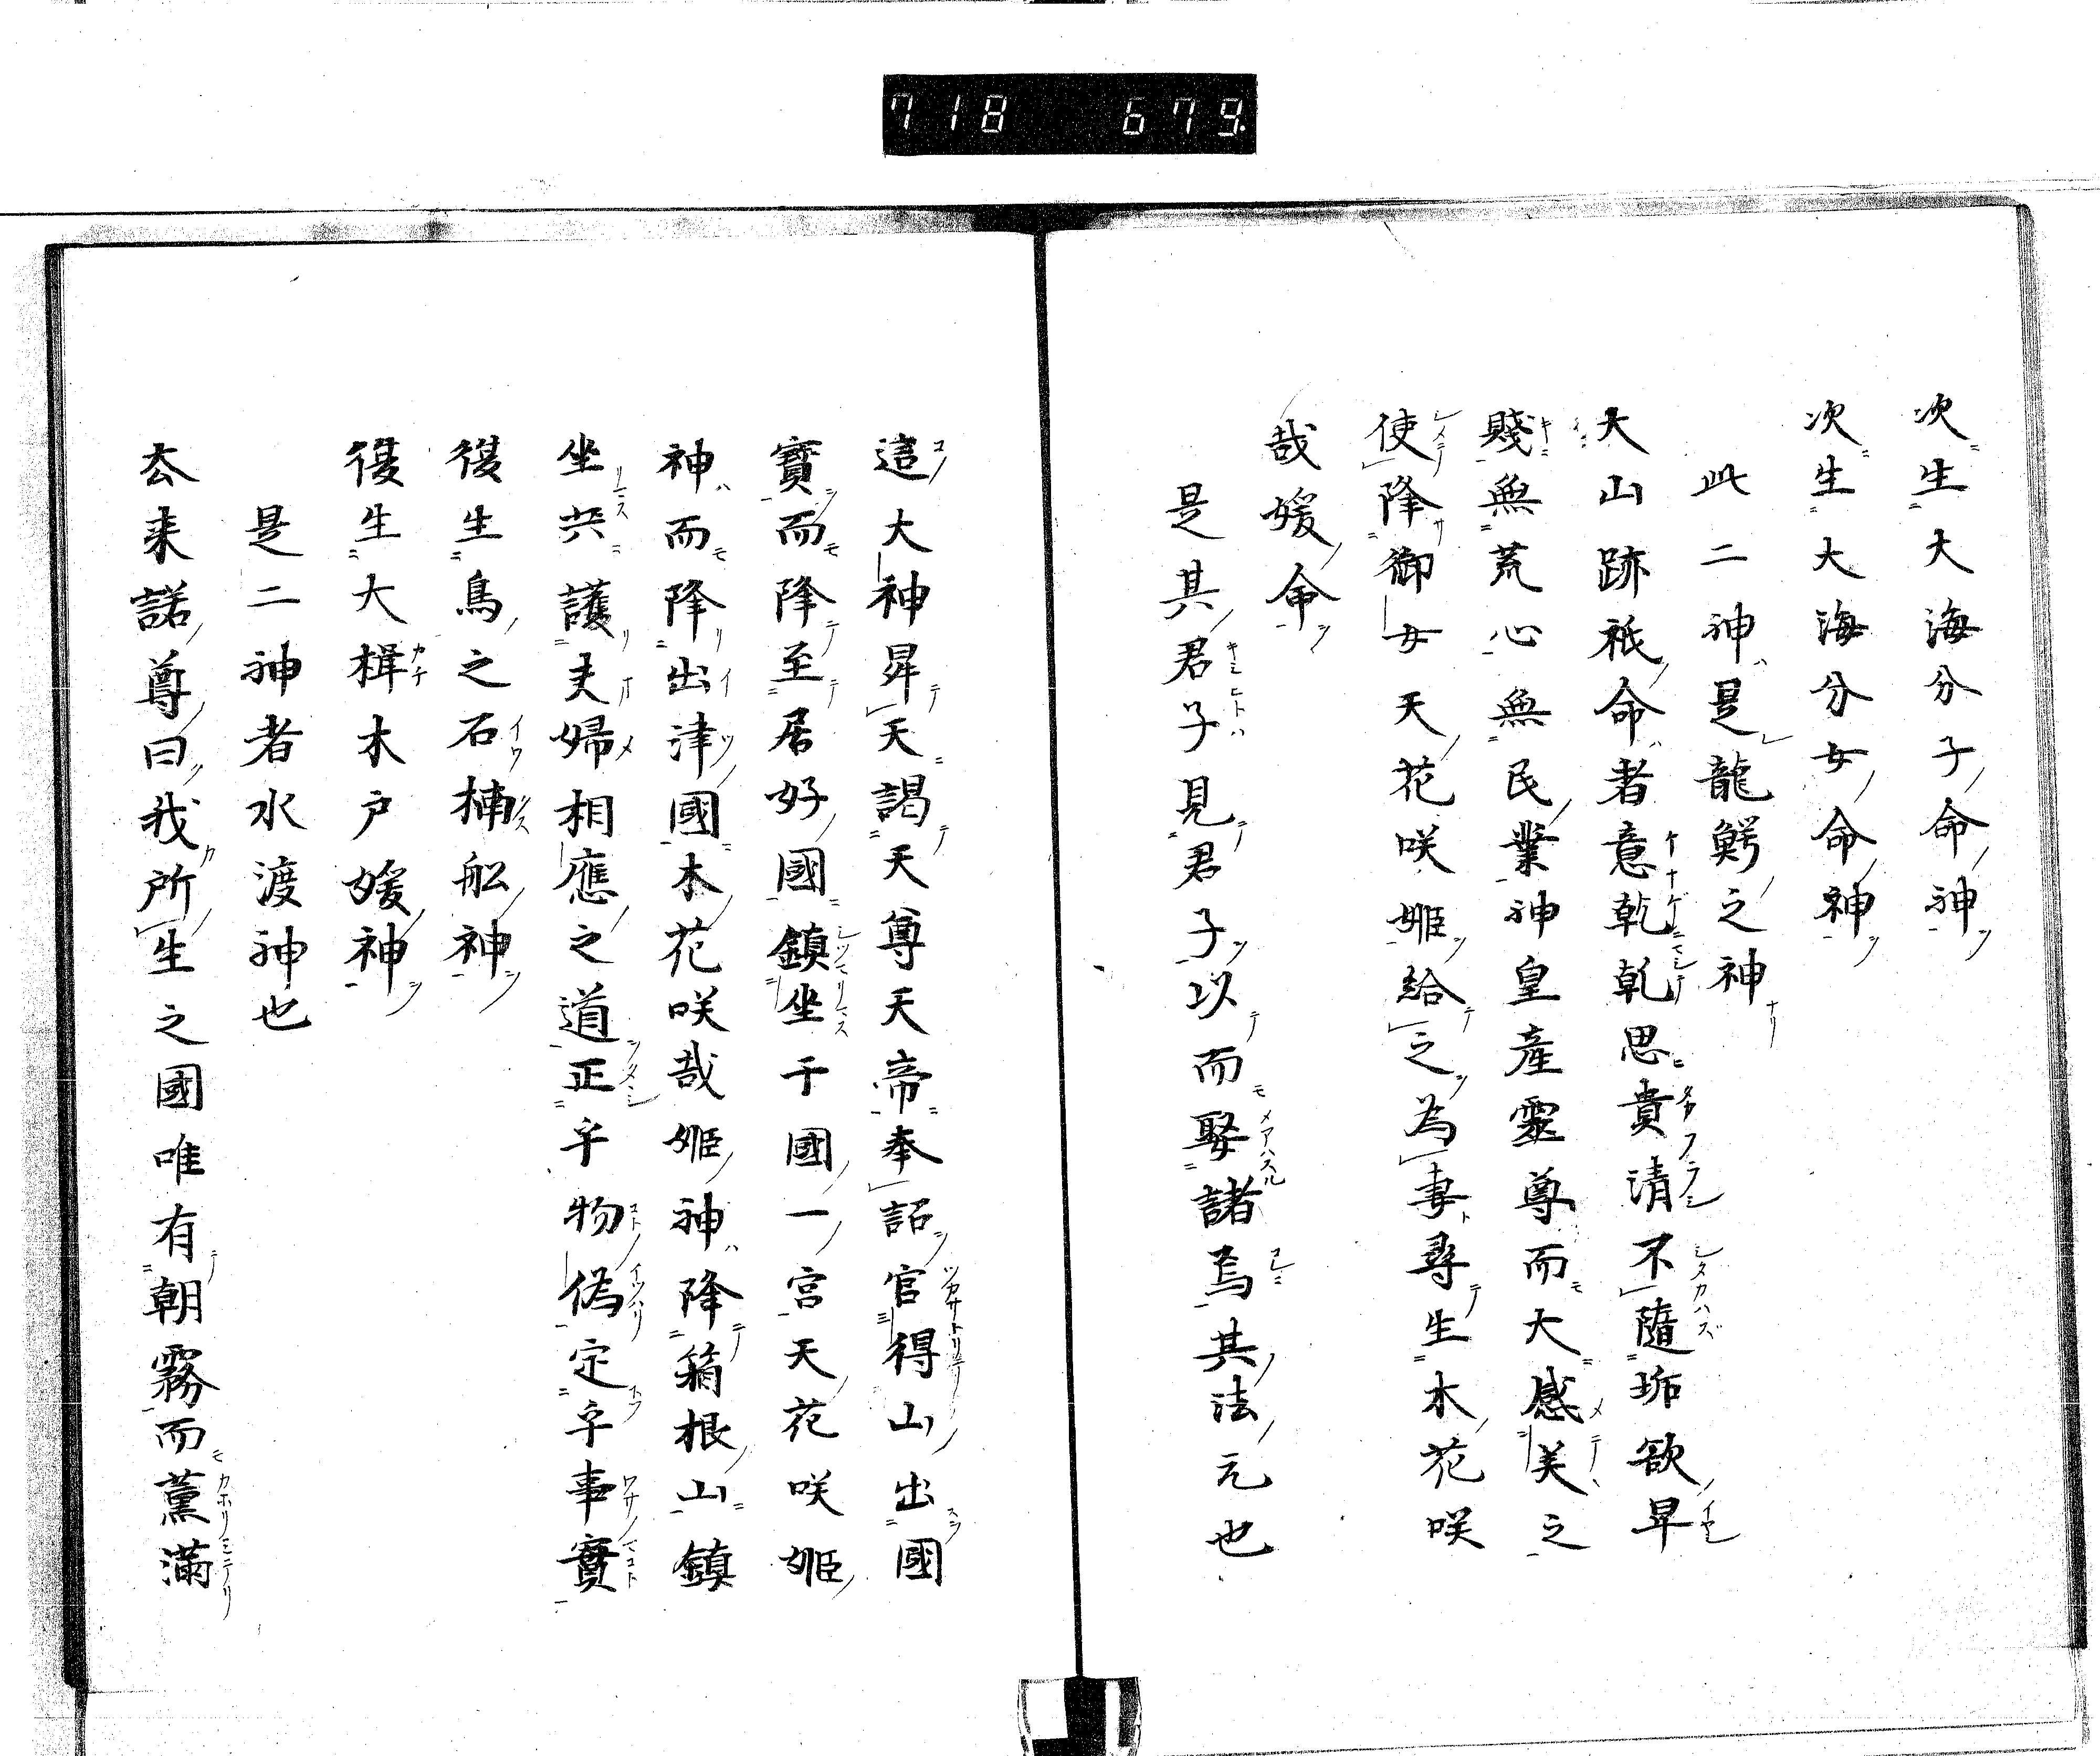 718 679.
次生大海分子命神
次生大海分女命神
此二神是龍鰐之神
大山跡祇命者意乾乾思貴清不隨垢欲卑
賤無荒心無民業神皇産靈尊而大感美之
使降御女天花咲姫給之為妻尋生木花咲
哉媛命
是其君子見君子以而娶諸焉其法元也
這大神昇天謁天尊天帝奉詔官得山出國
寶而降至居好國鎮坐于國一宮天花咲姫
神而降出津國木花咲哉姫神降箱根山鎮
坐共護夫婦相應之道正乎物偽定乎事實
復生鳥之石楠船神
復生大楫木戸媛神
是二神者水渡神也
厺来諾尊曰我所生之國唯有朝霧而薫滿